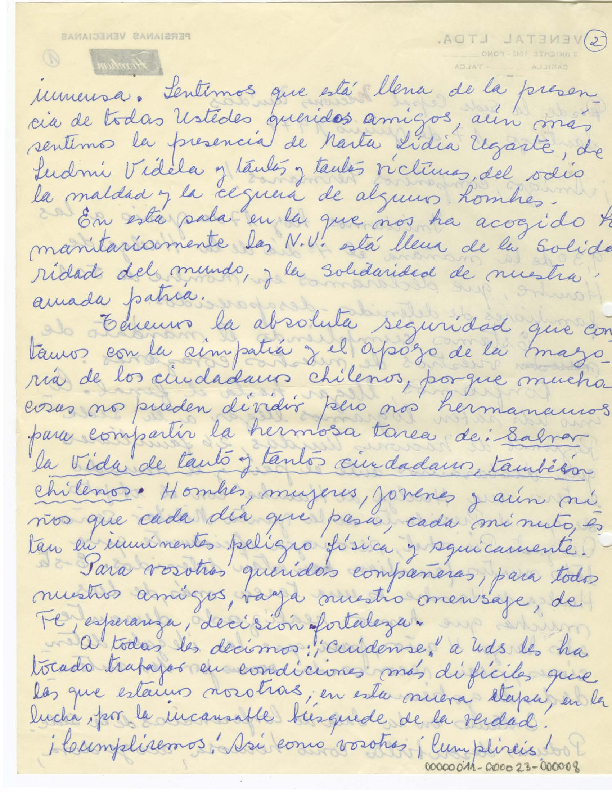 VENETAL LTDA.
PERSIANAS VENECIANAS
2
inmensa. Sentimos que está llena de la presen-
cia de todas Ustedes queridos amigos, aún más
sentimos la presencia de Marta Lidia Ugarte, de
Ludmi Videla y tantas y tantas víctimas, del odio
la maldad y la ceguera de algunos hombres.
En esta sala en la que nos ha acogido
manitariamente las N.U. está llena de la Solida
ridad del mundo, y la Solidaridad de nuestra
amada patria.
Tenemos la absoluta seguridad que con
tamos con la simpatía y el apoyo de la mayo
ría de los ciudadanos chilenos, porque mucha
cosas no pueden dividir pero nos hermanamos
para compartir la hermosa tarea de: Salvar
la Vida de tanto y tantos ciudadanos, también
chilenos. Hombres, mujeres, jovenes y aún ni
ños que cada día que pasa, cada minuto, es
tan en inminentes peligro física y siquicamente.
Para vosotras queridas compañeras, para todos
nuestros amigos, vaya nuestro mensaje, de
Fé, esperanza, decisión fortaleza.
A todas les decimos: ¡Cuidense! a Uds. les ha
tocado trabajar en condiciones más difíciles que
las que estamos nosotras, en esta nueva etapa, en la
lucha, por la incansable búsqueda de la verdad.
¡Cumpliremos! Asi como vosotras ¡Cumplireis!
00000011-000023-000008